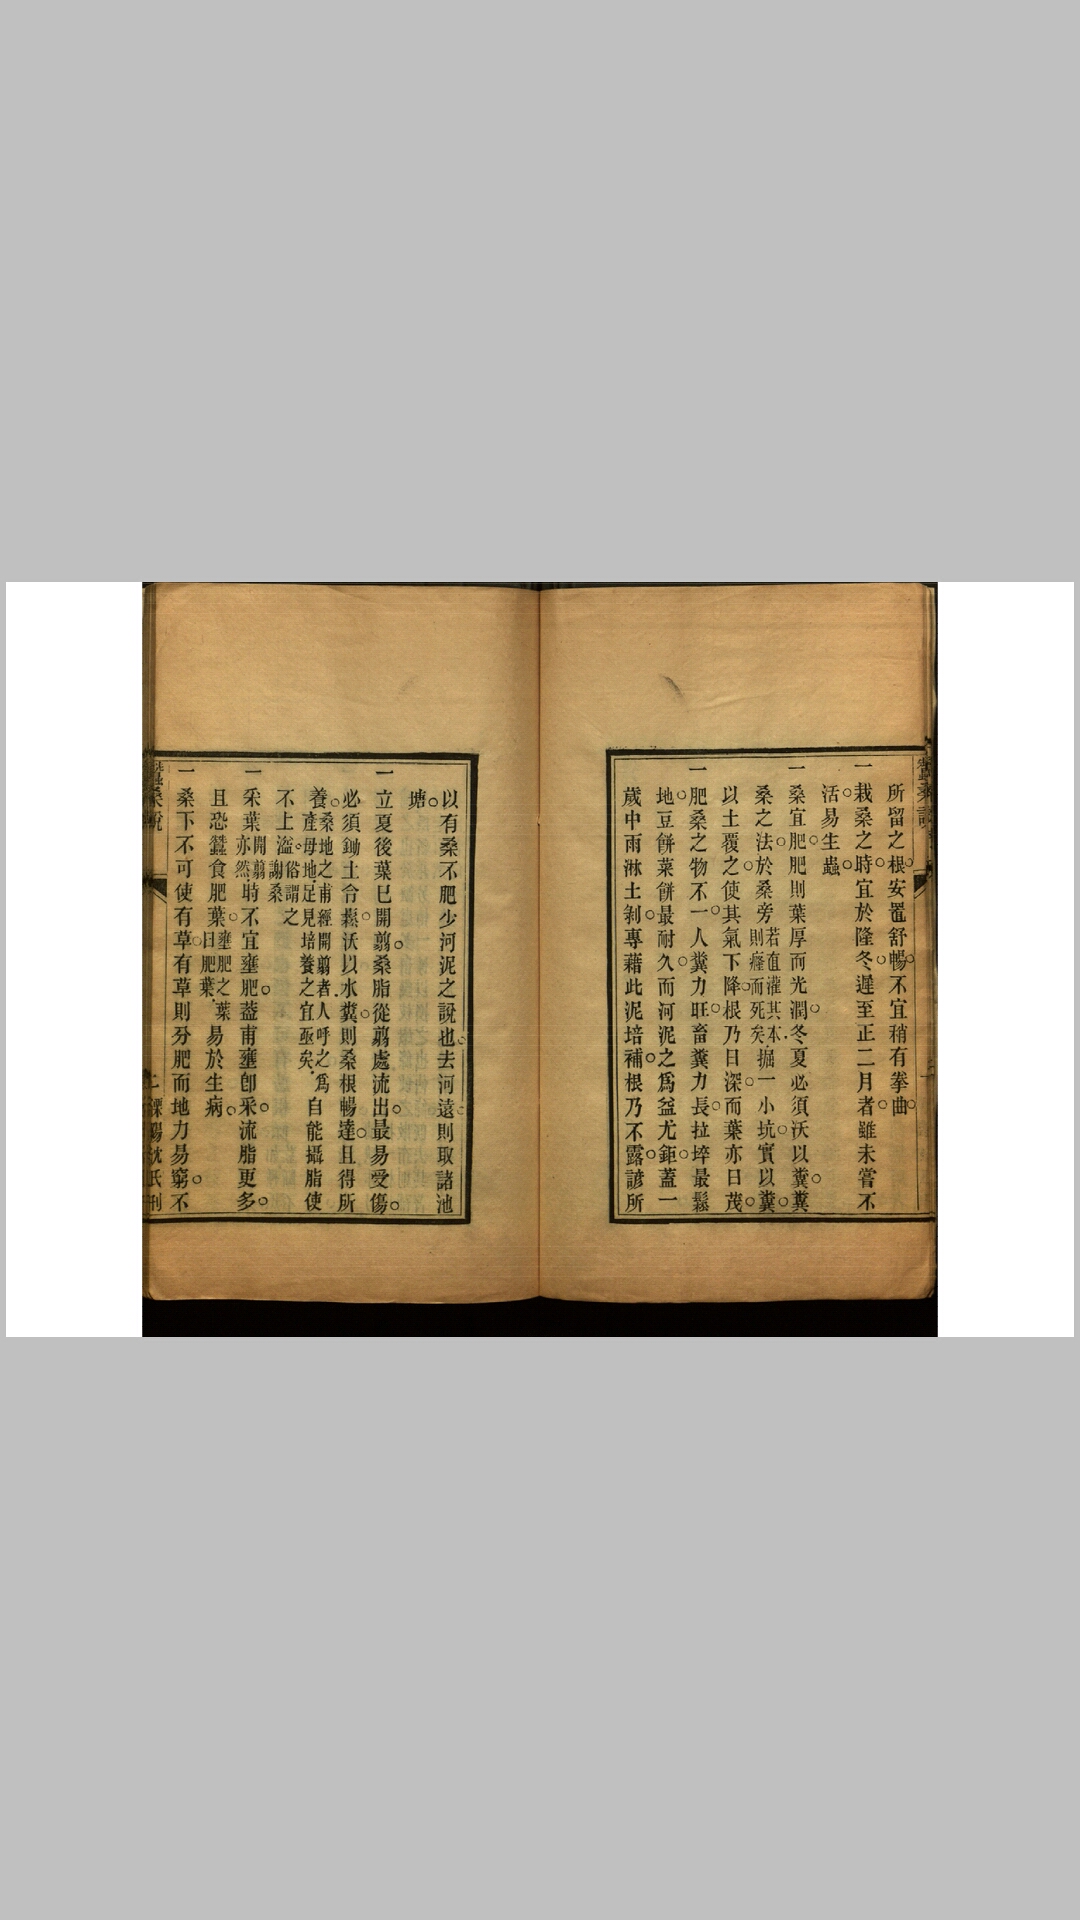 所留之根安置舒暢不宜稍有拳曲
一栽桑之時宜於隆冬遲至正二月者雖未嘗不
活易生蟲
一桑宜肥肥則葉厚而光潤冬夏必須沃以糞糞
桑之法於桑旁若直灌其本則癃而死矣掘一小坑實以糞
以土覆之使其氣下降根乃日深而葉亦日茂
一肥桑之物不一人糞力旺畜糞力長拉埣最鬆
地豆餅菜餅最耐久而河泥之爲益尤鉅蓋一
歲中雨淋土剝專藉此泥培補根乃不露諺所
以有桑不肥少河泥之說也去河遠則取諸池
塘
一立夏後葉已開翦桑脂從翦處流出最易受傷
必須鋤土令鬆沃以水糞則桑根暢達且得所
養桑地之甫經開翦者人呼之爲產母地足見培養之宜亟矣自能攝脂使
不上溢俗謂之謝桑
一采葉開翦亦然時不宜壅肥蓋甫壅卽采流脂更多
且恐蠶食肥葉壅肥之葉曰肥葉易於生病
一桑下不可使有草有草則分肥而地力易窮不
蠶桑說
二
溧陽沈氏刊